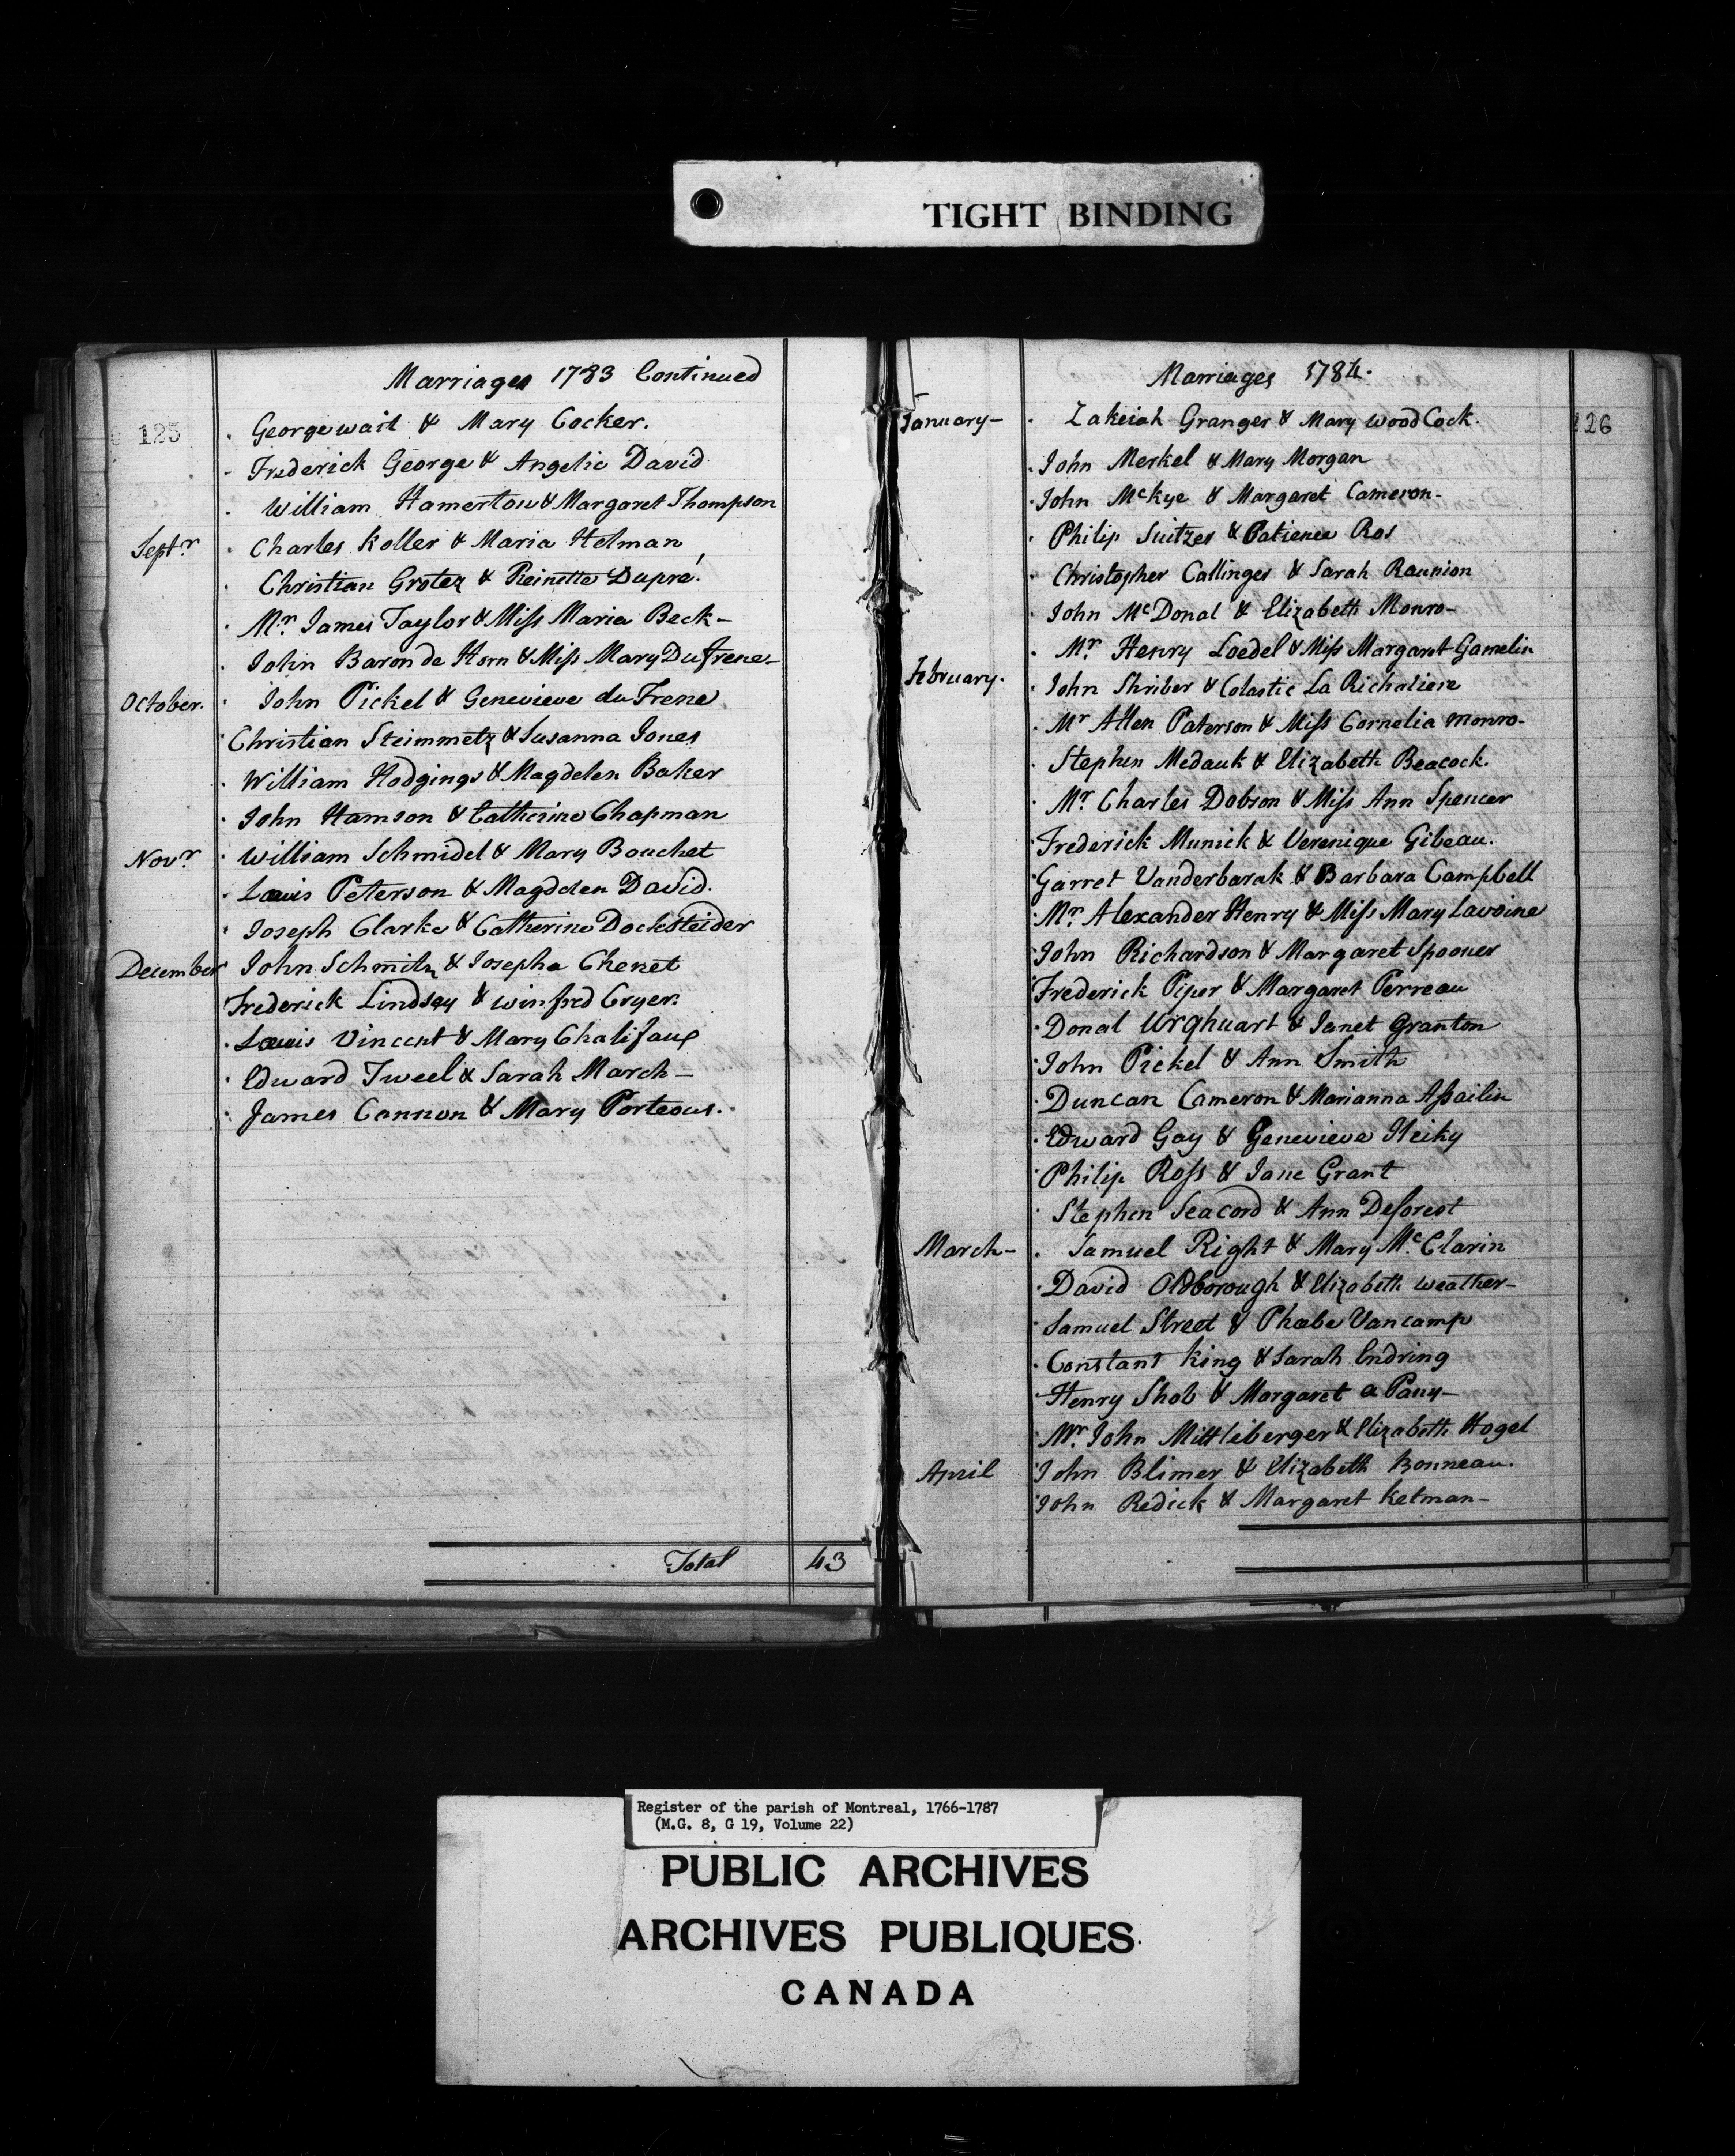 TIGHT BINDING
Marriages 1783 Continued
125
George wait & Mary Cocker.
Frederick George & Angelic David
William Hamerton & Margaret Thompson
Septr. Charles Koller & Maria Helman
Christian Grotez & Reinette Dupré.
Mr. James Taylor & Miss Maria Beck-
John Baron de Horn & Miss Mary Dufrene-
October. John Pickel & Genevieve du Frene
Christian Steimmetz & Susanna Jones
William Hodgings & Magdelen Baker
John Hamson & Catherine Chapman
Novr. William Schmidel & Mary Bouchet
Lewis Peterson & Magdelen David.
Joseph Clarke & Catherine Docksteider
December John Schmitz & Josepha Chenet
Frederick Lindsay & winfred Cryer.
Lewis Vincent & Mary Chalifaux
Edward Tweel & Sarah March-
James Cannon & Mary Porteous.
Total 43
Marriages 1784.
126
January- Zakeiah Granger & Mary wood Cock.
John Merkel & Mary Morgan
John McKye & Margaret Cameron-
Philip Suitzer & Patience Ros
Christopher Callinger & Sarah Raunion
John McDonal & Elizabeth Monro-
Mr. Henry Loedel & Miss Margaret Gamelin
February. John Shriber & Colastic La Richaliere
Mr Allen Paterson & Miss Cornelia monro-
Stephen Medauk & Elizabeth Beacock.
Mr. Charles Dobson & Miss Ann Spencer
Frederick Munick & Verenique Gibeau.
Garret Vanderbarak & Barbara Campbell
Mr. Alexander Henry & Miss Mary Lavoine
John Richardson & Margaret Spooner
Frederick Piper & Margaret Perreau
Donal Urqhuart & Janet Granton
John Pickel & Ann Smith
Duncan Cameron & Marianna Assailin
Edward Gay & Genevieve Heiky
Philip Ross & Jane Grant
Stephen Seacord & Ann Deforest
March- Samuel Right & Mary McClarin
David Oldborough & Elizabeth weather-
Samuel Street & Phœbe Vancamp
Constant King & Sarah Endring
Henry Shob & Margaret a Pany-
Mr. John Mittleberger & Elizabeth Hogel
April John Blimer & Elizabeth Bonneau.
John Redick & Margaret Ketman-
Register of the parish of Montreal, 1766-1787
(M.G. 8, G 19, Volume 22)
PUBLIC ARCHIVES
ARCHIVES PUBLIQUES
CANADA